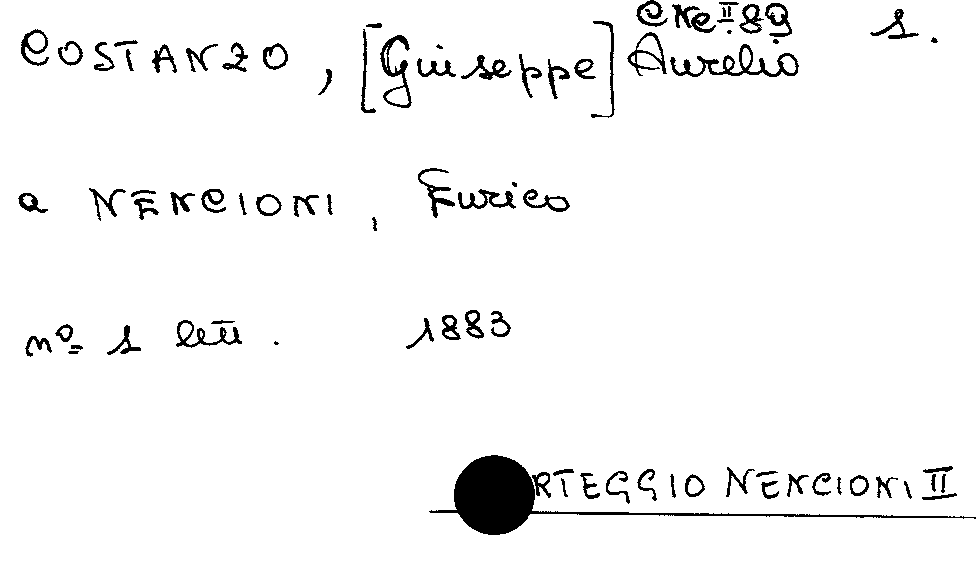 CNC.II.89
COSTANZO, [Giuseppe] Aurelio 1.
a NENCIONI, Enrico
nº 1 lett. 1883
RTEGGIO NENCIONI II